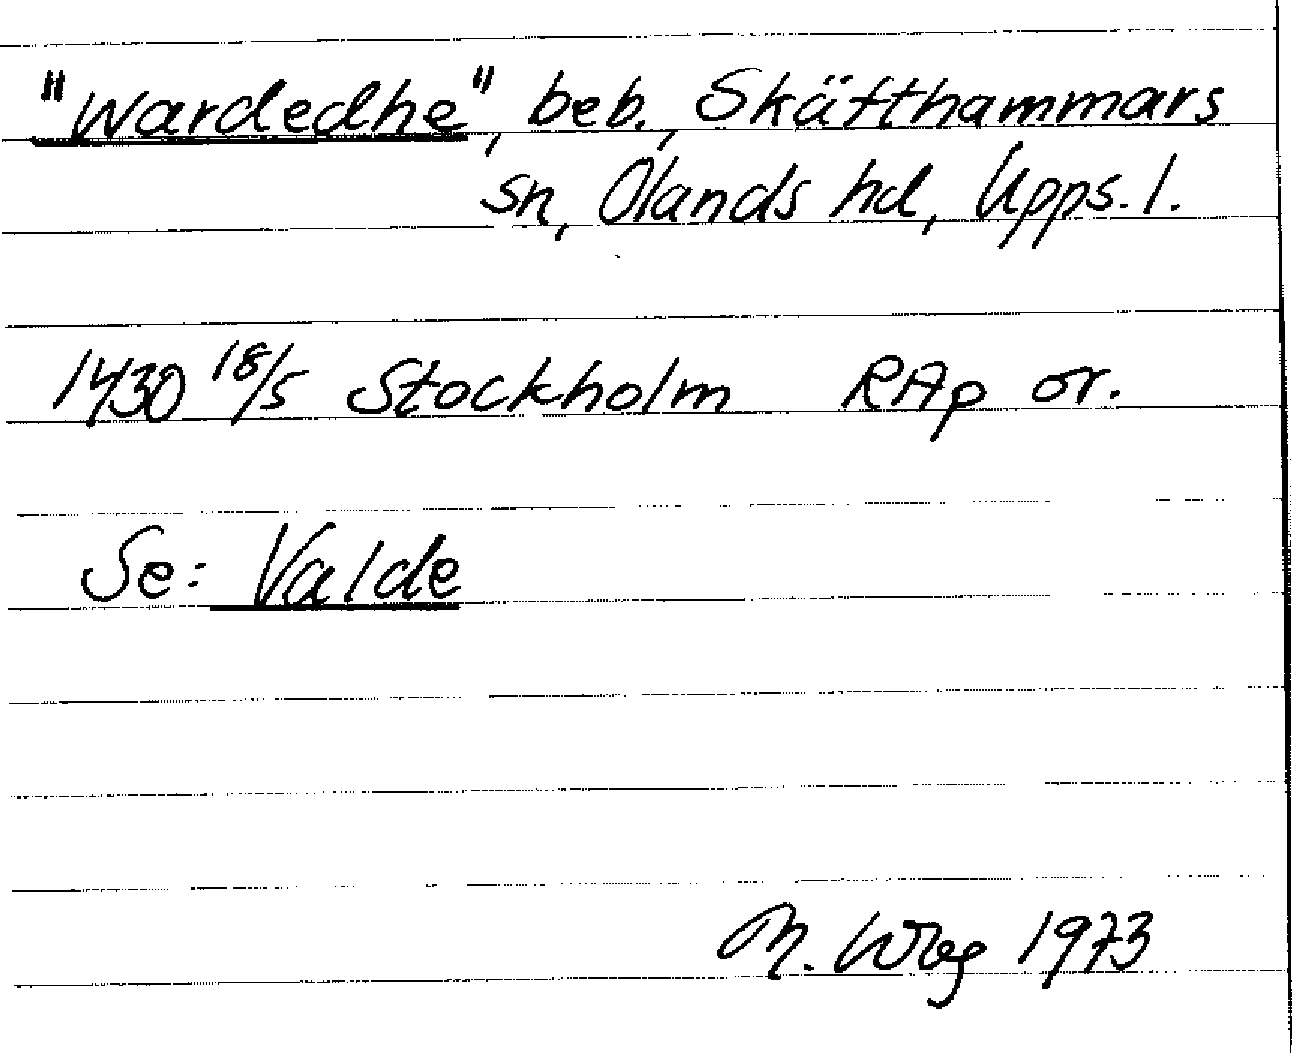 "Wardedhe", beb., Skäfthammars
sn, Olands hd, Upps. l.
1430 18/5 Stockholm RAp or.
Se: Valde
M. Wbg 1973